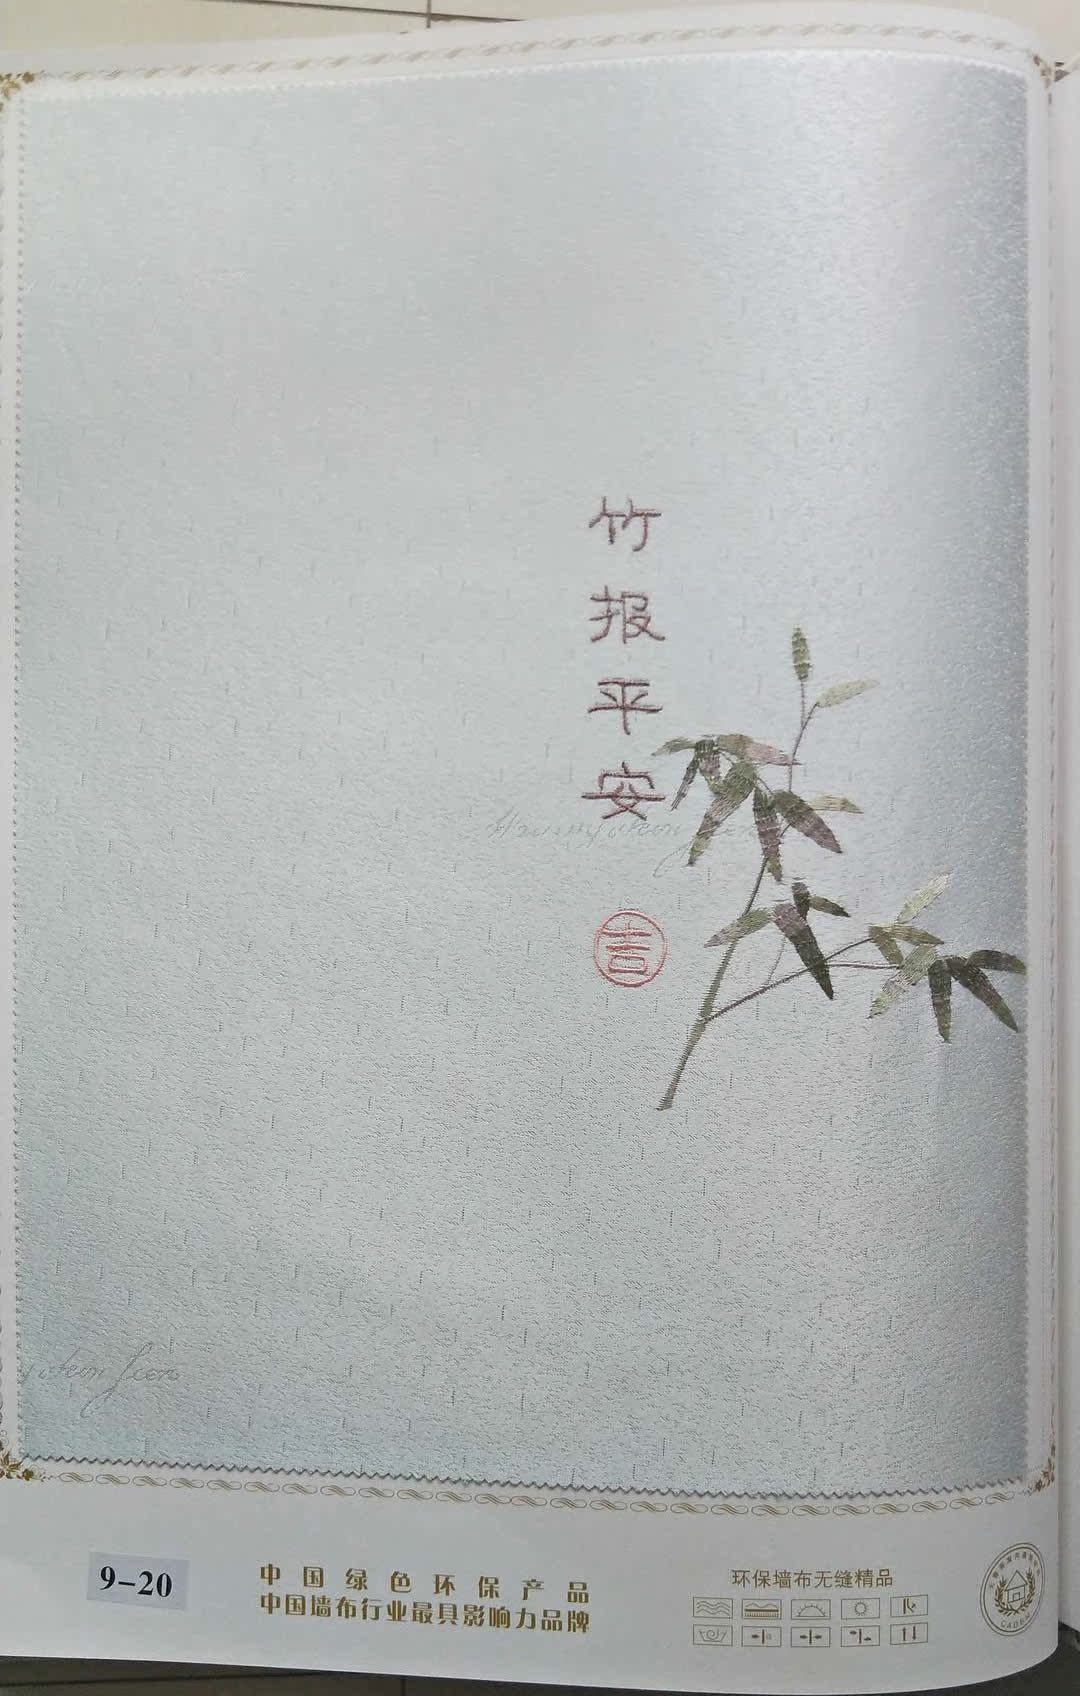 竹
报
平
安
吉
9-20
中国绿色环保产品
中国墙布行业最具影响力品牌
环保墙布无缝精品